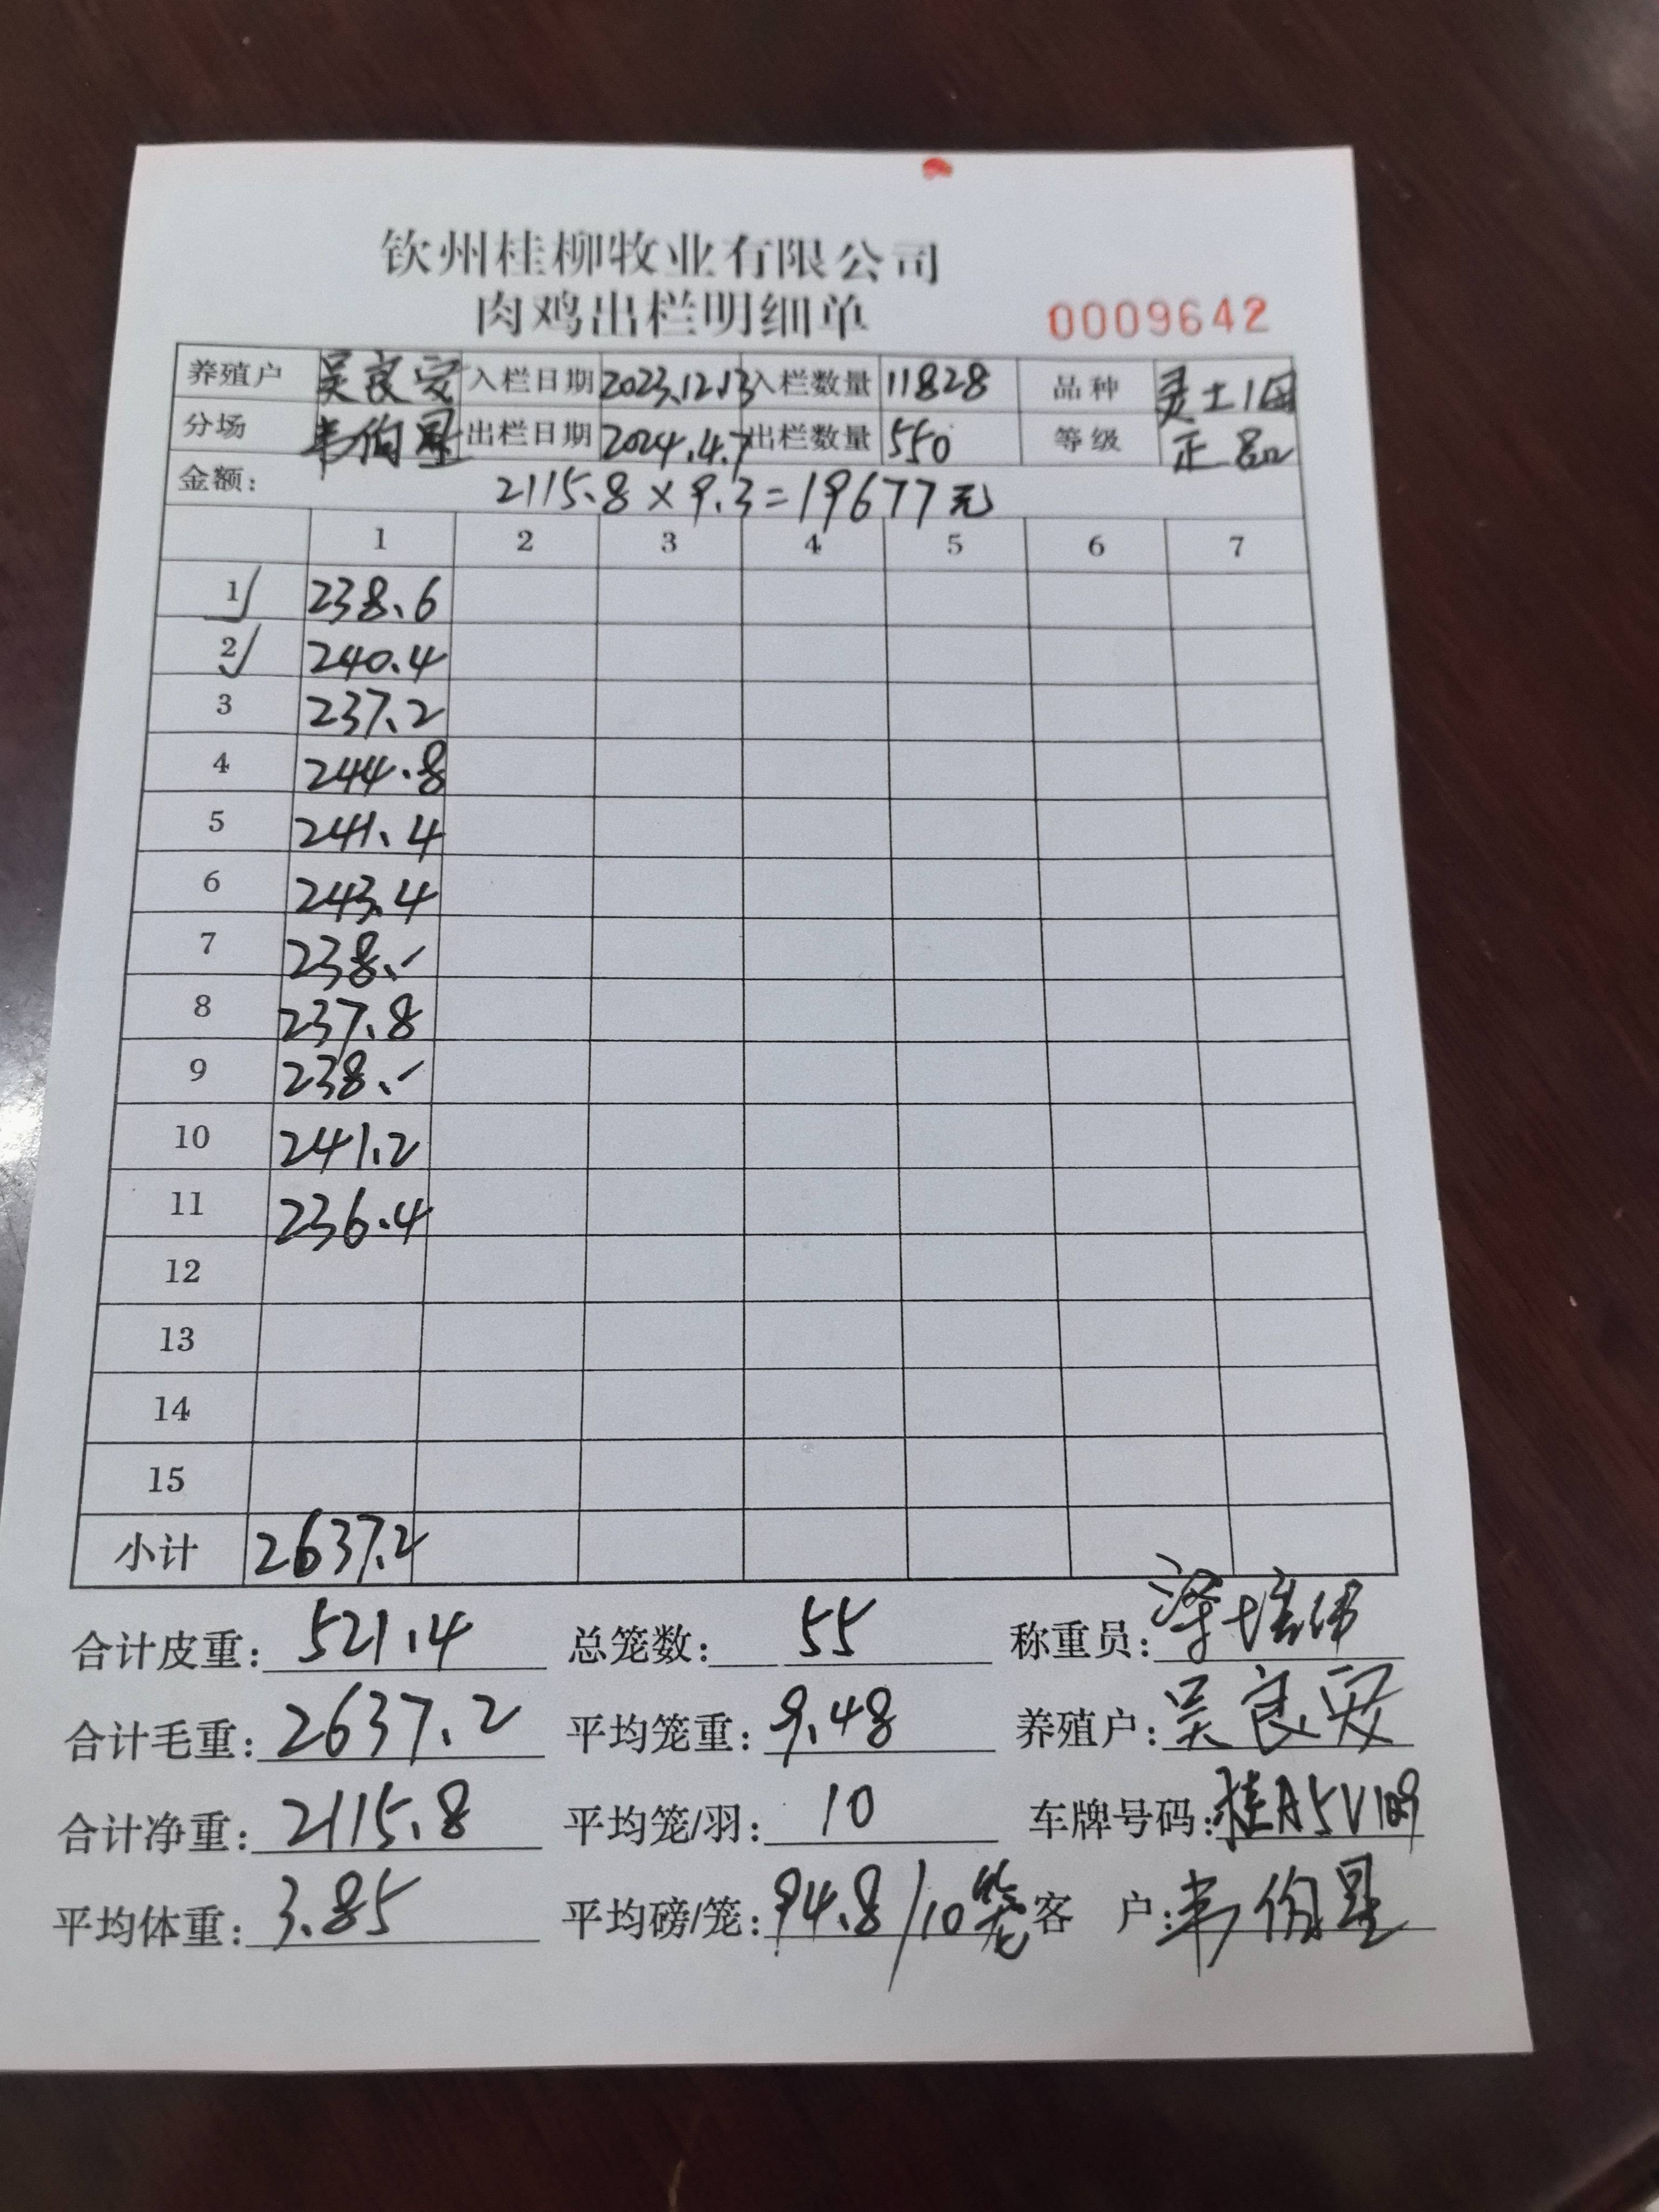 钦州桂柳牧业有限公司
肉鸡出栏明细单 0009642
养殖户 吴良安 入栏日期 2023.12.13 入栏数量 11828 品种 灵土1母
分场 韦伯星 出栏日期 2024.4.7 出栏数量 550 等级 正品
金额: 2115.8×9.3=19677元
1 2 3 4 5 6 7
1 238.6
2 240.4
3 237.2
4 244.8
5 241.4
6 243.4
7 238.-
8 237.8
9 238.-
10 241.2
11 236.4
12
13
14
15
小计 2637.2
合计皮重: 521.4 总笼数: 55 称重员:
合计毛重: 2637.2 平均笼重: 9.48 养殖户: 吴良安
合计净重: 2115.8 平均笼/羽: 10 车牌号码: 桂A5V109
平均体重: 3.85 平均磅/笼: 94.8/10笼 客 户: 韦伯星